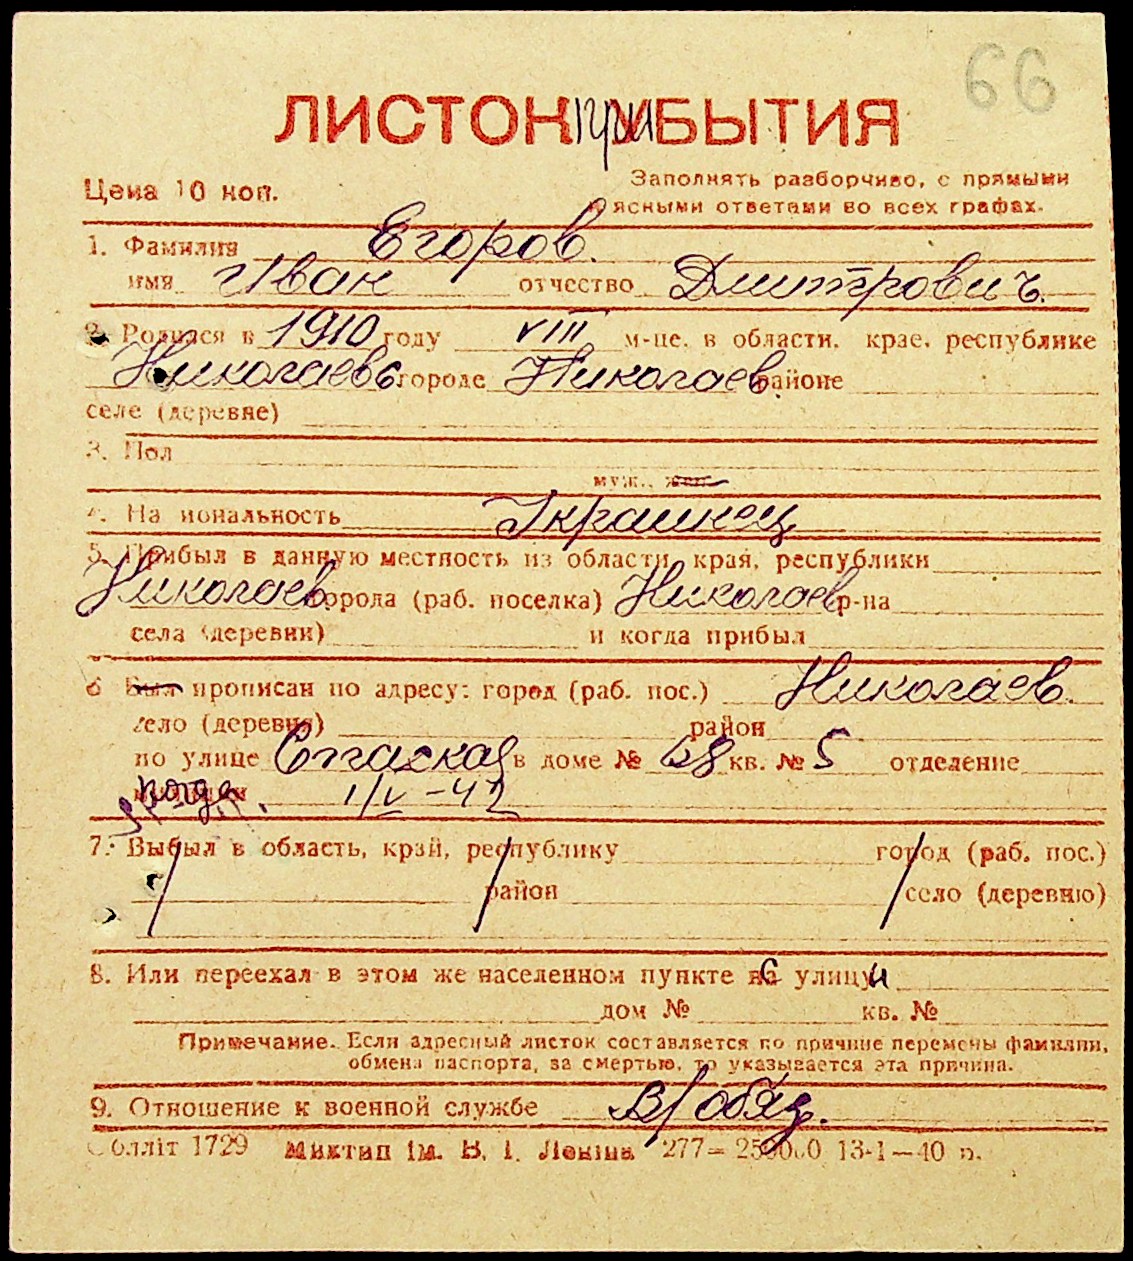 66
ЛИСТОК при УБЫТИЯ
Цена 10 коп.
Заполнять разборчиво, с прямыми
ясными ответами во всех графах.
1. Фамилия Егоров.
имя Иван отчество Дмитрович.
2. Родился в 1910 году VIII м-це, в области, крае, республике
Николаевс городе Николаев районе
селе (деревне)
3. Пол
муж., жен.
4. Национальность Украинец
5. Прибыл в данную местность из области, края, республики
Николаев. города (раб. поселка) Николаев р-на
села (деревни) и когда прибыл
6 Был прописан по адресу: город (раб. пос.) Николаев.
село (деревня) район
по улице Спаская в доме № 58 кв. № 5 отделение
милиции 1/V-42
7. Выбыл в область, край, республику город (раб. пос.)
район село (деревню)
8. Или переехал в этом же населенном пункте с улицы
дом № кв. №
Примечание. Если адресный листок составляется по причине перемены фамилии,
обмена паспорта, за смертью, то указывается эта причина.
9. Отношение к военной службе в/обяз.
Облліт 1729 Миктип ім. В. І. Леніна 277— 250000 13-1—40 р.